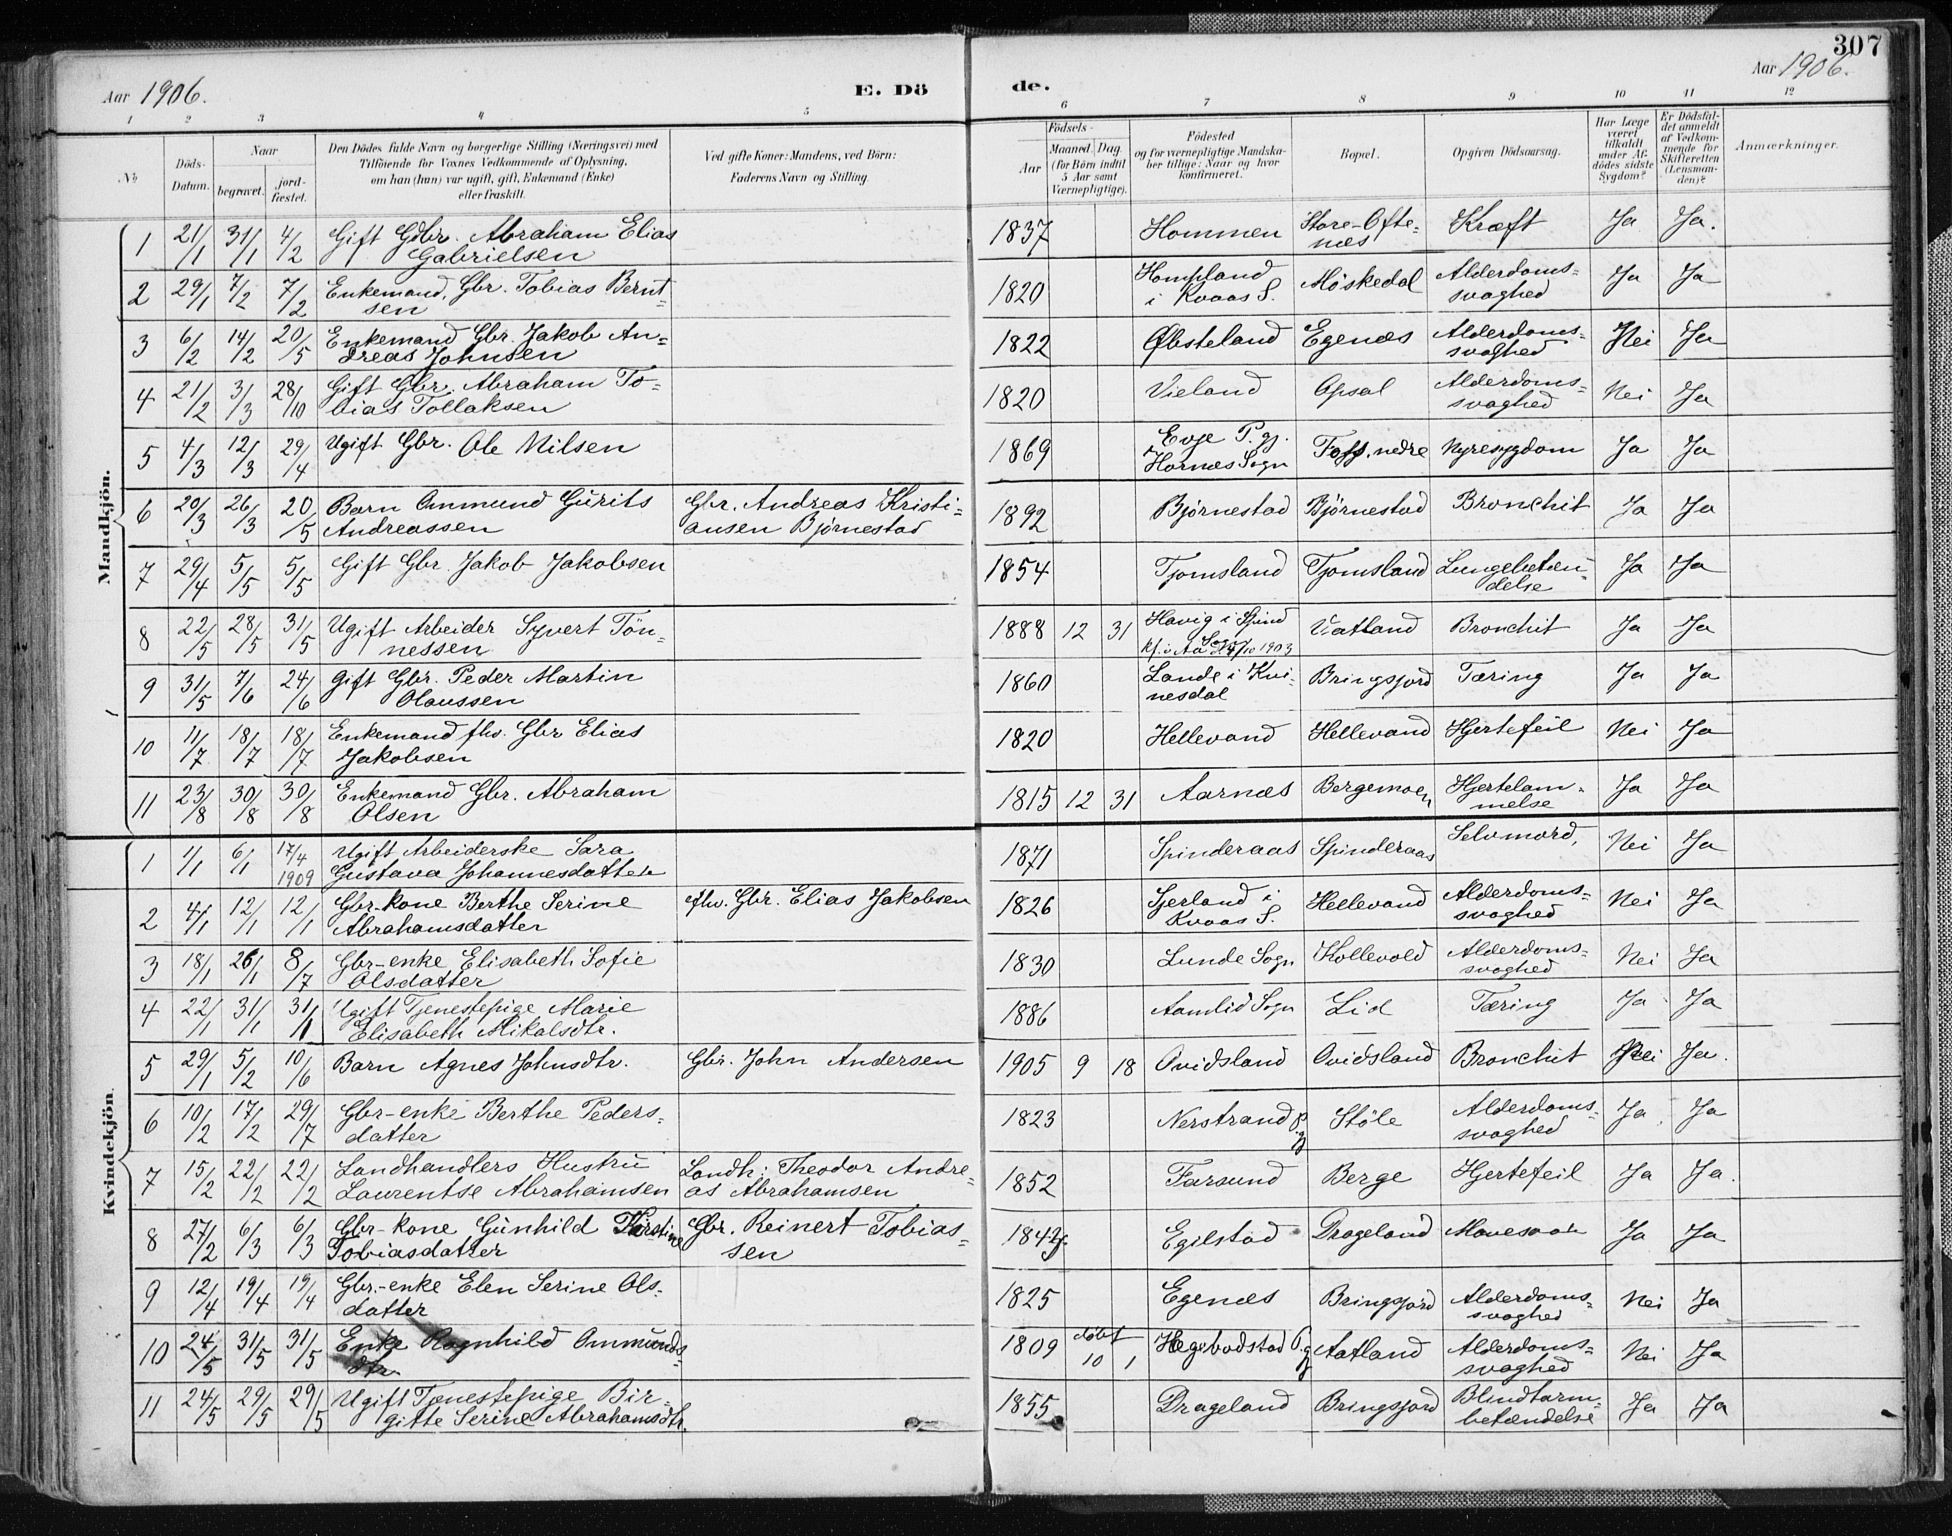 307
Aar 1906. E. Dö de. Aar 1906.
1 2 3 4 5 6 7 8 9 10 11 12
No
Döds-Datum.
Naar
begravet. jord-fæstet.
Den Dödes fulde Navn og borgerlige Stilling (Næringsvei) med
Tilföiende for Voxnes Vedkommende af Oplysning,
om han (hun) var ugift, gift, Enkemand (Enke)
eller fraskilt.
Ved gifte Koner: Mandens, ved Börn:
Faderens Navn og Stilling.
Födsels-
Aar Maaned. Dag.
(for Börn indtil
5 Aar samt
Værnepligtige).
Födested
og for værnepligtige Mandska-
ber tillige: Naar og hvor
konfirmeret.
Bopæl.
Opgiven Dödsaarsag.
Har Læge
været
tilkaldt
under Af-
dödes sidste
Sygdom?
Er Dödsfal-
det anmeldt
af Vedkom-
mende for
Skifteretten
(Lensman-
den)?
Anmærkninger.
Mandkjön.
1 21/1 31/1 4/2 Gift Gdbr. Abraham Elias Gabrielsen 1837 Hommen Store-Oftenæs Kræft Ja Ja.
2 29/1 7/2 7/2 Enkemand, Gbr. Tobias Berntsen 1820 Hompland i Kvaas S. Möskedal Alderdoms=svaghed Ja Ja
3 6/2 14/2 20/5 Enkemand Gbr. Jakob An=dreas Johnsen 1822 Øbsteland Egenæs Alderdoms=svaghed Nei Ja
4 21/2 3/3 28/10 Gift Gbr. Abraham To=bias Tollaksen 1820 Vieland Opsal Alderdoms=svaghed Nei Ja
5 4/3 12/3 29/4 Ugift Gbr. Ole Nilsen 1869 Evje P.gj. Hornæs Sogn Foss, nedre Nyresygdom Ja Ja
6 20/3 26/3 20/5 Barn Ommund Gurits Andreassen Gbr. Andreas Kristi=ansen Bjørnestad 1892 Bjørnestad Björnestad Bronchit Ja Ja
7 29/4 5/5 5/5 Gift Gbr. Jakob Jakobsen 1854 Tjomsland Tjomsland Lungebetæn=delse Ja Ja
8 22/5 28/5 31/5 Ugift Arbeider Syvert Tön=nessen 1888 12 31 Havig i Spind Sogn 1903 Vatland Bronchit Ja Ja
9 31/5 7/6 24/6 Gift Gbr. Peder Martin Olaussen 1860 Lande i Kvi=nesdal Bringsjord Tæring Ja Ja
10 11/7 18/7 18/7 Enkemand fhv. Gbr Elias Jakobsen 1820 Hellevand Hellevand Hjertefeil Nei Ja
11 23/8 30/8 30/8 Enkemand Gbr. Abraham Olsen 1815 12 31 Aarnæs Bergemoen Hjertelam=melse Ja Ja
Kvindekjön
1 1/1 6/1 17/4 1909 Ugift Arbeiderske Sara Gustava Johannesdatter 1871 Spinderaas Spinderaas Selvmord, Nei Ja
2 4/1 12/1 12/1 Gbr-kone Berthe Serine Abrahamsdatter fhv. Gbr. Elias Jakobsen 1826 Sjerland i Kvaas S. Hellevand Alderdoms=svaghed Nei Ja
3 18/1 26/1 8/7 Gbr-enke Elisabeth Sofie Olsdatter 1830 Lunde Sogn Kollevold Alderdoms=svaghed Nei Ja
4 22/1 31/1 31/1 Ugift Tjenestepige Marie Elisabeth Mikalsdtr. 1886 Aamlid Sogn Lid Tæring Ja Ja
5 29/1 5/2 10/6 Barn Agnes Johnsdtr. Gbr. John Andersen 1905 9 18 Ovidsland Ovidsland Bronchit Nei Ja.
6 10/2 17/2 29/7 Gbr-enke Berthe Peders=datter 1823 Nerstrand P.gj Stöle Alderdoms=svaghed Ja Ja
7 15/2 22/2 22/2 Landhandlers Hustru Laurentse Abrahamsen Landh: Theodor Andre=as Abrahamsen 1852 Farsund Berge Hjertefeil Ja Ja.
8 27/2 6/3 6/3 Gbr-kone Gunhild Kirstine Tobiasdatter Gbr. Reinert Tobias=sen 184 Egilstad Drageland Mavesaar Ja Ja
9 12/4 19/4 19/4 Gbr.-enke Elen Serine Ols.datter 1825 Egenæs Bringsjord Alderdoms=svaghed Nei Ja
10 24/5 31/5 31/5 Enke Ragnhild Ommunds=dtr. 1809 döbt 10 1 Hægebostad P.gj Aatland Alderdoms=svaghed Nei Ja
11 24/5 29/5 29/5 Ugift Tjenestepige Bir-gitte Serine Abrahamsdtr. 1855 Drageland Bringsjord Blindtarm-betændelse Ja Ja